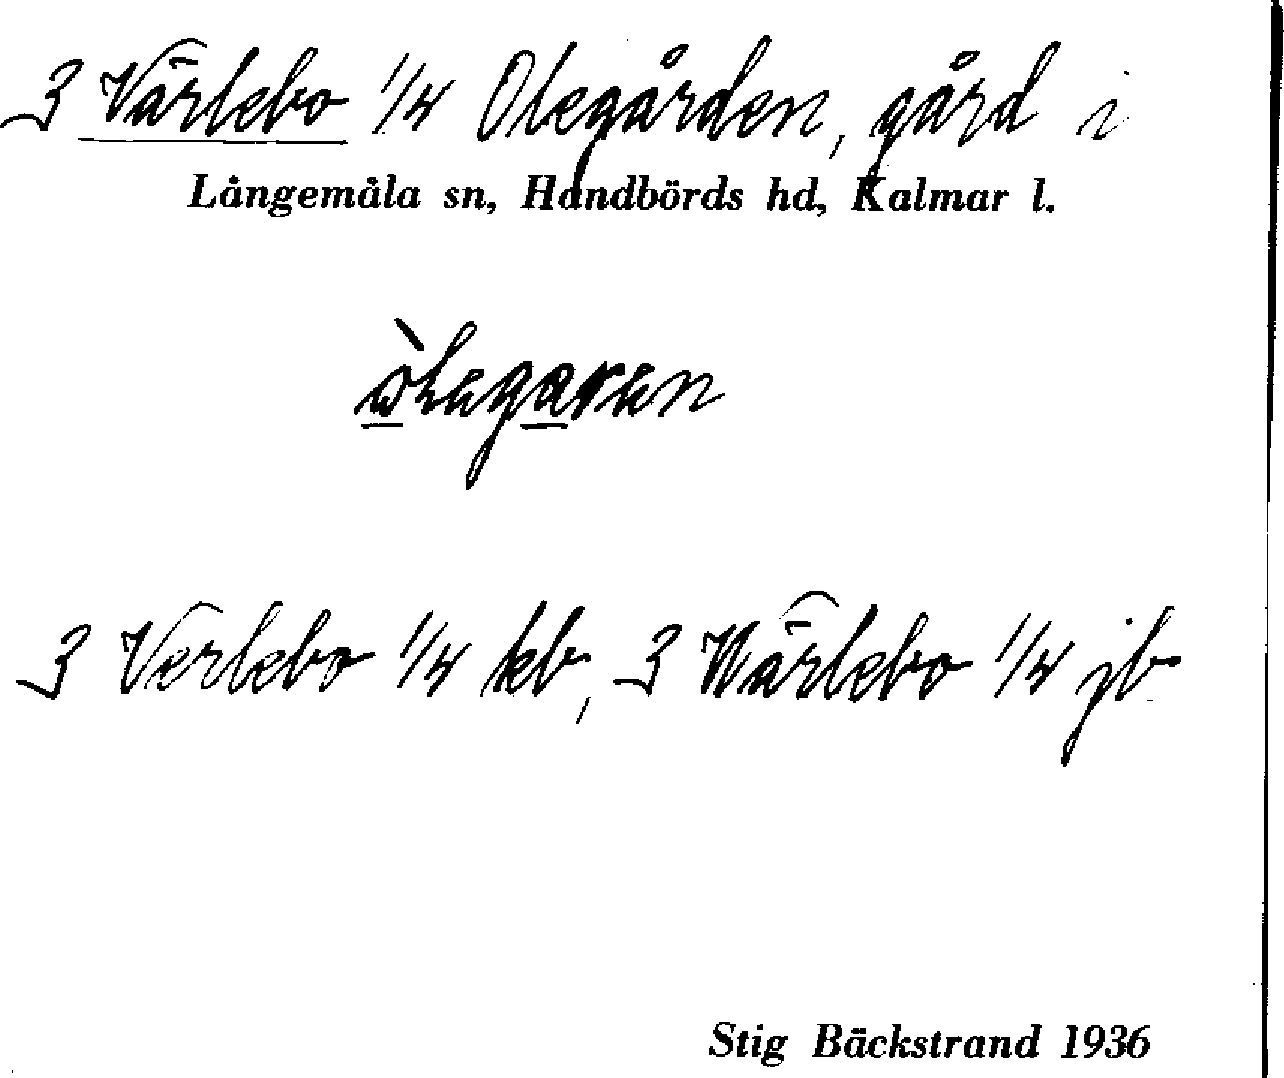 3 Värlebo 1/4 Olegården, gård i
Långemåla sn, Handbörds hd, Kalmar l.
3 Verlebo 1/4 kb, 3 Wärlebo 1/4 jb
Stig Bäckstrand 1936